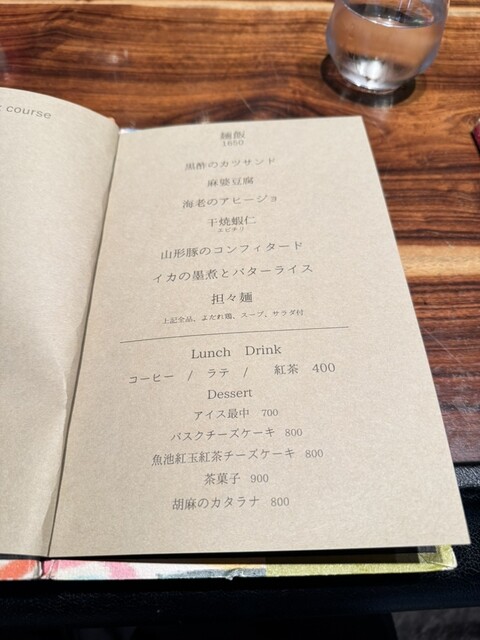 course
麺飯
1650
黒酢のカツサンド
麻婆豆腐
海老のアヒージョ
干焼蝦仁
エビチリ
山形豚のコンフィタード
イカの墨煮とバターライス
担々麺
上記全品、よだれ鶏、スープ、サラダ付
Lunch Drink
コーヒー / ラテ / 紅茶 400
Dessert
アイス最中 700
バスクチーズケーキ 800
魚池紅玉紅茶チーズケーキ 800
茶菓子 900
胡麻のカタラナ 800